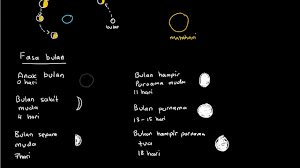 bulan
matahari
Fasa bulan
Anak bulan
0 hari
Bulan sabit
muda
4 hari
Bulan separa
muda
7hari
Bulan hampir
Purnama muda
11 hari
Bulan purnama
13 - 15 hari
Bulan hampir purnama
tua
18 hari